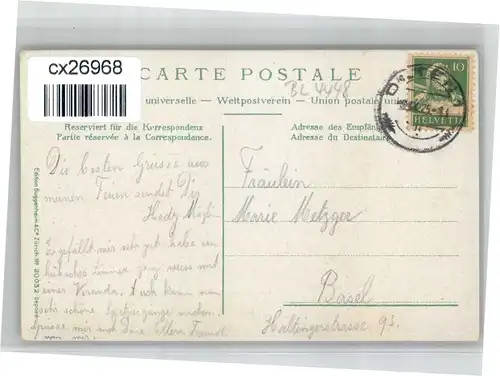 cx26968
CARTE POSTALE
BL 4448
universelle — Weltpostverein — Union postale
Reserviert für die Korrespondenz
Partie réservée à la Correspondance.
Adresse des Empfäng
Adresse du Destinatai
10
HELVETIA
Die besten Grüsse aus
meinen Ferien sendet Dir
Hedy
Es gefällt mir sehr gut habe ein
hübsches Zimmer ganz weiss mit
einer Veranda. Auch kann man
sehr schöne Spaziergänge machen.
Grüsse mir auch Deine Eltern
Fräulein
Marie Metzger
Basel
Haltingerstrasse 93.
Edition Guggenheim & Co Zürich Nr 20032